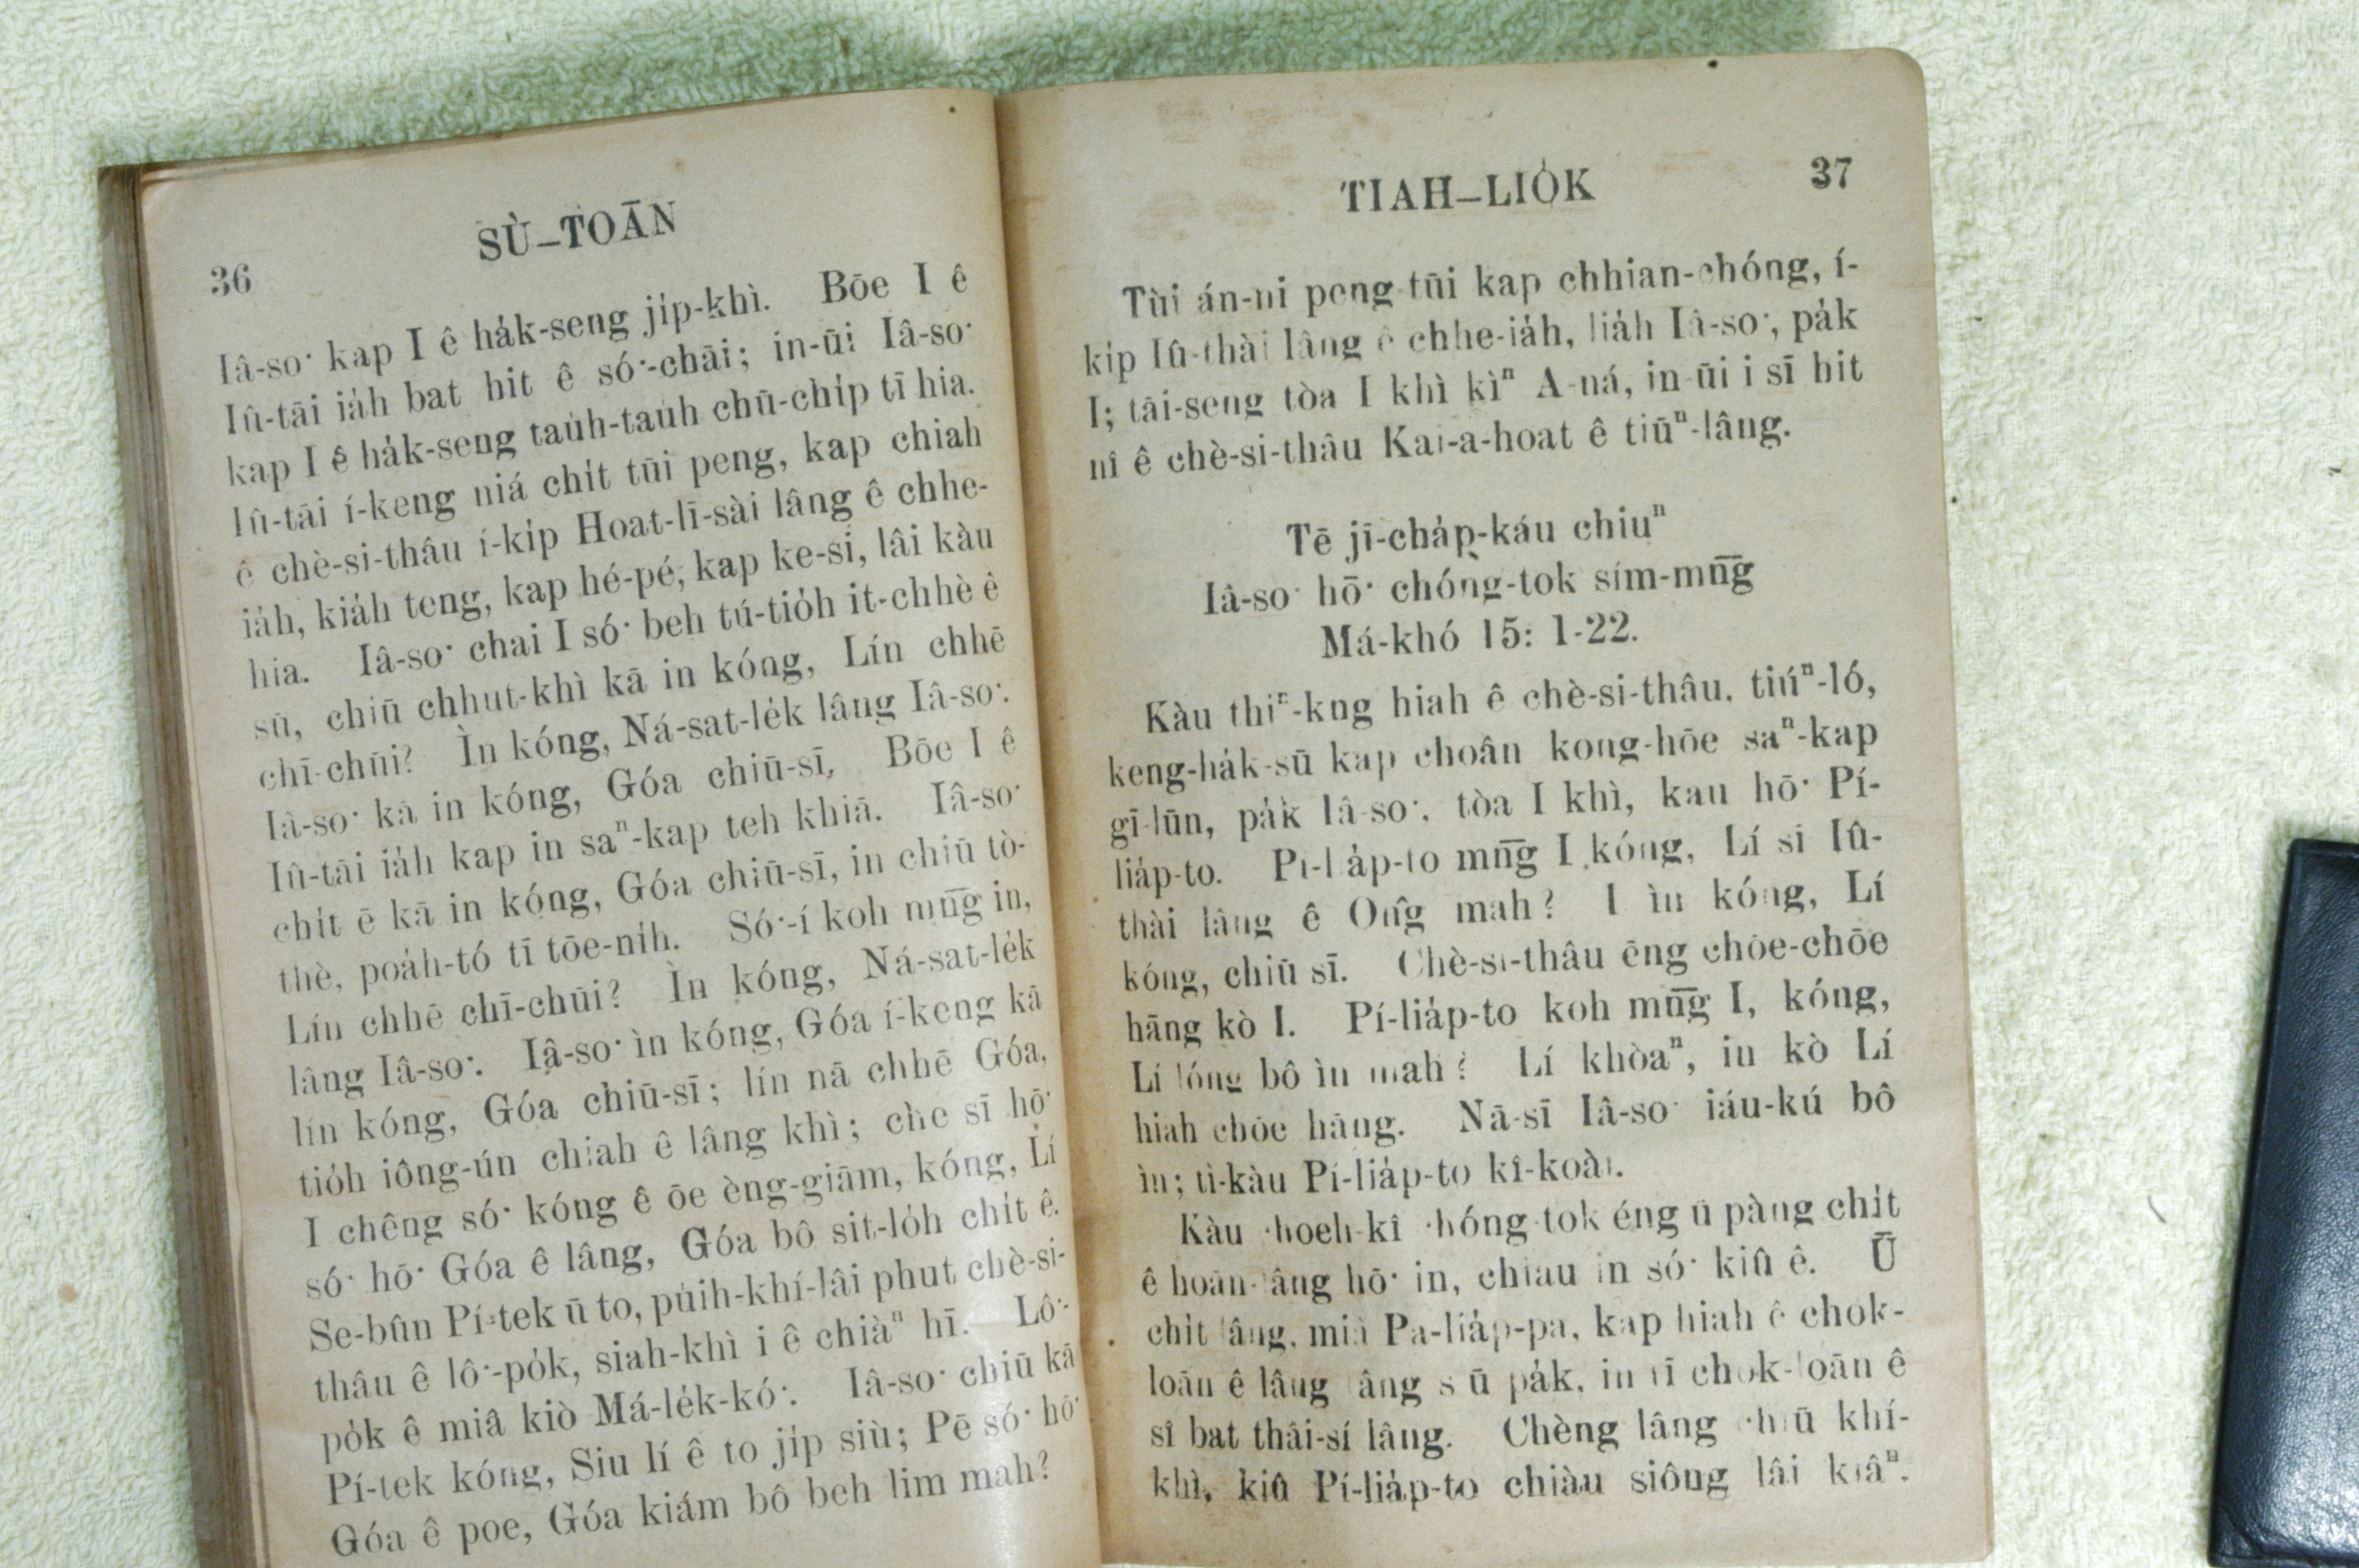 36
SÙ–TOĀN
Iâ-so͘ kap I ê ha̍k-seng ji̍p-khì. Bōe I ê
Iû-tāi ia̍h bat hit ê só͘-chāi; in-ūi Iâ-so͘
kap I ê ha̍k-seng tau̍h-tau̍h chū-chi̍p tī hia.
Iû-tāi í-keng niá chi̍t tūi peng, kap chiah
ê chè-si-thâu í-ki̍p Hoat-lī-sài lâng ê chhe-
ia̍h, kia̍h teng, kap hé-pé, kap ke-si, lâi kàu
hia. Iâ-so͘ chai I só͘ beh tú-tio̍h it-chhè ê
sū, chiū chhut-khì kā in kóng, Lín chhē
chī-chūi? Ìn kóng, Ná-sat-le̍k lâng Iâ-so͘.
Iâ-so͘ kā in kóng, Góa chiū-sī. Bōe I ê
Iû-tāi ia̍h kap in saⁿ-kap teh khiā. Iâ-so͘
chi̍t ē kā in kóng, Góa chiū-sī, in chiū tò-
thè, poa̍h-tó tī tōe-ni̍h. Só͘-í koh mn̄g in,
Lín chhē chī-chūi? Ìn kóng, Ná-sat-le̍k
lâng Iâ-so͘. Iâ-so͘ ìn kóng, Góa í-keng kā
lín kóng, Góa chiū-sī; lín nā chhē Góa,
tio̍h iông-ún chiah ê lâng khì; che sī hō͘
I chêng só͘ kóng ê ōe èng-giām, kóng, Lí
só͘ hō͘ Góa ê lâng, Góa bô sit-lo̍h chi̍t ê.
Se-bûn Pí-tek ū to, pu̍ih-khí-lâi phut chè-si-
thâu ê lô͘-po̍k, siah-khì i ê chiàⁿ hī. Lô͘-
po̍k ê miâ kiò Má-le̍k-kó͘. Iâ-so͘ chiū kā
Pí-tek kóng, Siu lí ê to ji̍p siù; Pē só͘ hō͘
Góa ê poe, Góa kiám bô beh lim mah?
TIAH–LIO̍K
37
Tùi án-ni peng tūi kap chhian-chóng, í-
ki̍p Iû-thài lâng ê chhe-ia̍h, lia̍h Iâ-so͘, pa̍k
I; tāi-seng tòa I khì kìⁿ A-ná, in-ūi i sī hit
nî ê chè-si-thâu Kai-a-hoat ê tiūⁿ-lâng.
Tē jī-cha̍p-káu chiuⁿ
Iâ-so͘ hō͘ chóng-tok sím-mn̄g
Má-khó 15: 1-22.
Kàu thiⁿ-kng hiah ê chè-si-thâu, tiúⁿ-ló,
keng-ha̍k-sū kap choân kong-hōe saⁿ-kap
gī-lūn, pa̍k Iâ-so͘, tòa I khì, kau hō͘ Pí-
lia̍p-to. Pí-lia̍p-to mn̄g I kóng, Lí sī Iû-
thài lâng ê Ông mah? I ìn kóng, Lí
kóng, chiū sī. Chè-si-thâu ēng chōe-chōe
hāng kò I. Pí-lia̍p-to koh mn̄g I, kóng,
Lí lóng bô ìn mah? Lí khòaⁿ, in kò Lí
hiah chōe hāng. Nā-sī Iâ-so͘ iáu-kú bô
ìn; tì-kàu Pí-lia̍p-to kî-koài.
Kàu choeh-kî chóng-tok éng ū pàng chi̍t
ê hoān-lâng hō͘ in, chiau in só͘ kiû ê. Ū
chi̍t lâng, miâ Pa-lia̍p-pa, kap hiah ê chok-
loān ê lâng ū pa̍k, in tī chok-loān ê
sî bat thâi-sí lâng. Chèng lâng chiū khí-
khì, kiû Pí-lia̍p-to chiàu siông lâi kiâⁿ.